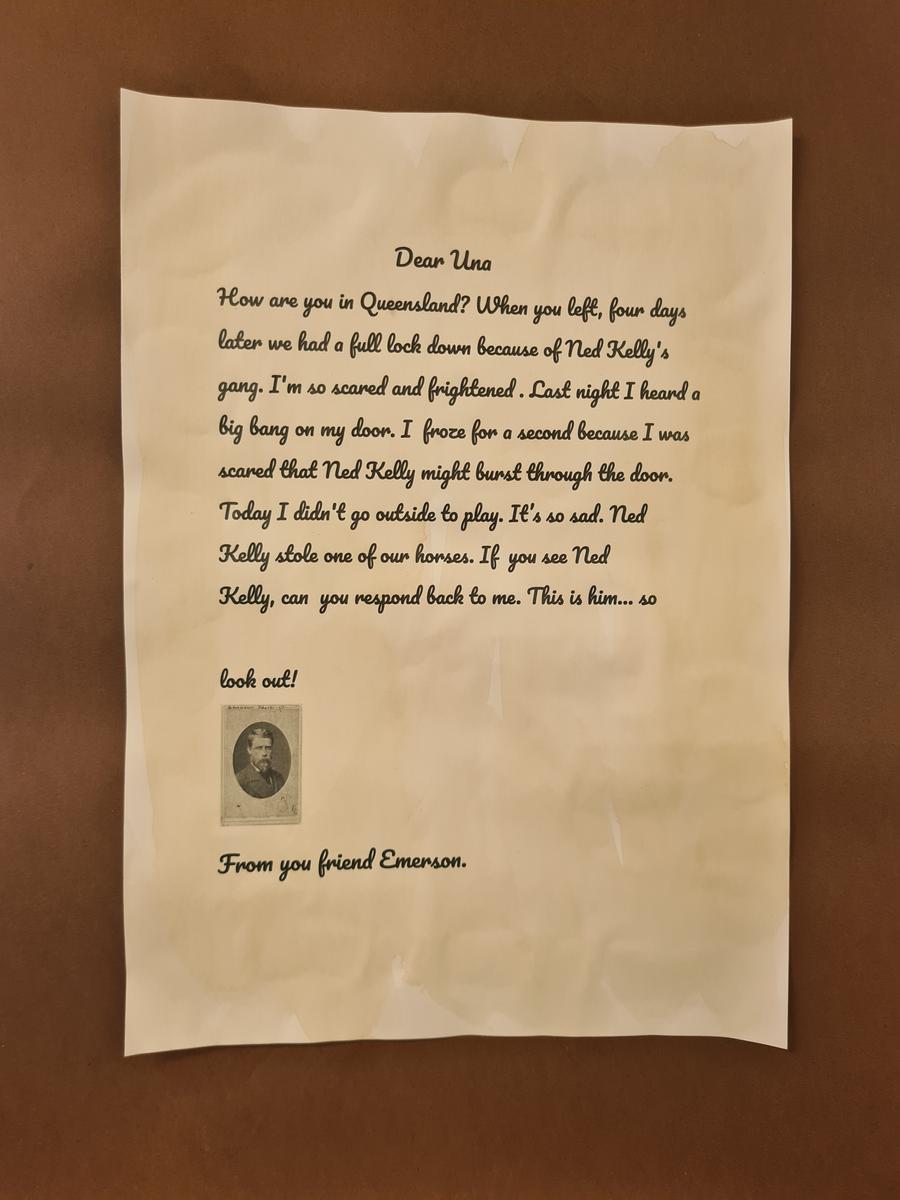 Dear Una
How are you in Queensland? When you left, four days
later we had a full lock down because of Ned Kelly's
gang. I'm so scared and frightened . Last night I heard a
big bang on my door. I froze for a second because I was
scared that Ned Kelly might burst through the door.
Today I didn't go outside to play. It's so sad. Ned
Kelly stole one of our horses. If you see Ned
Kelly, can you respond back to me. This is him... so
look out!
From you friend Emerson.